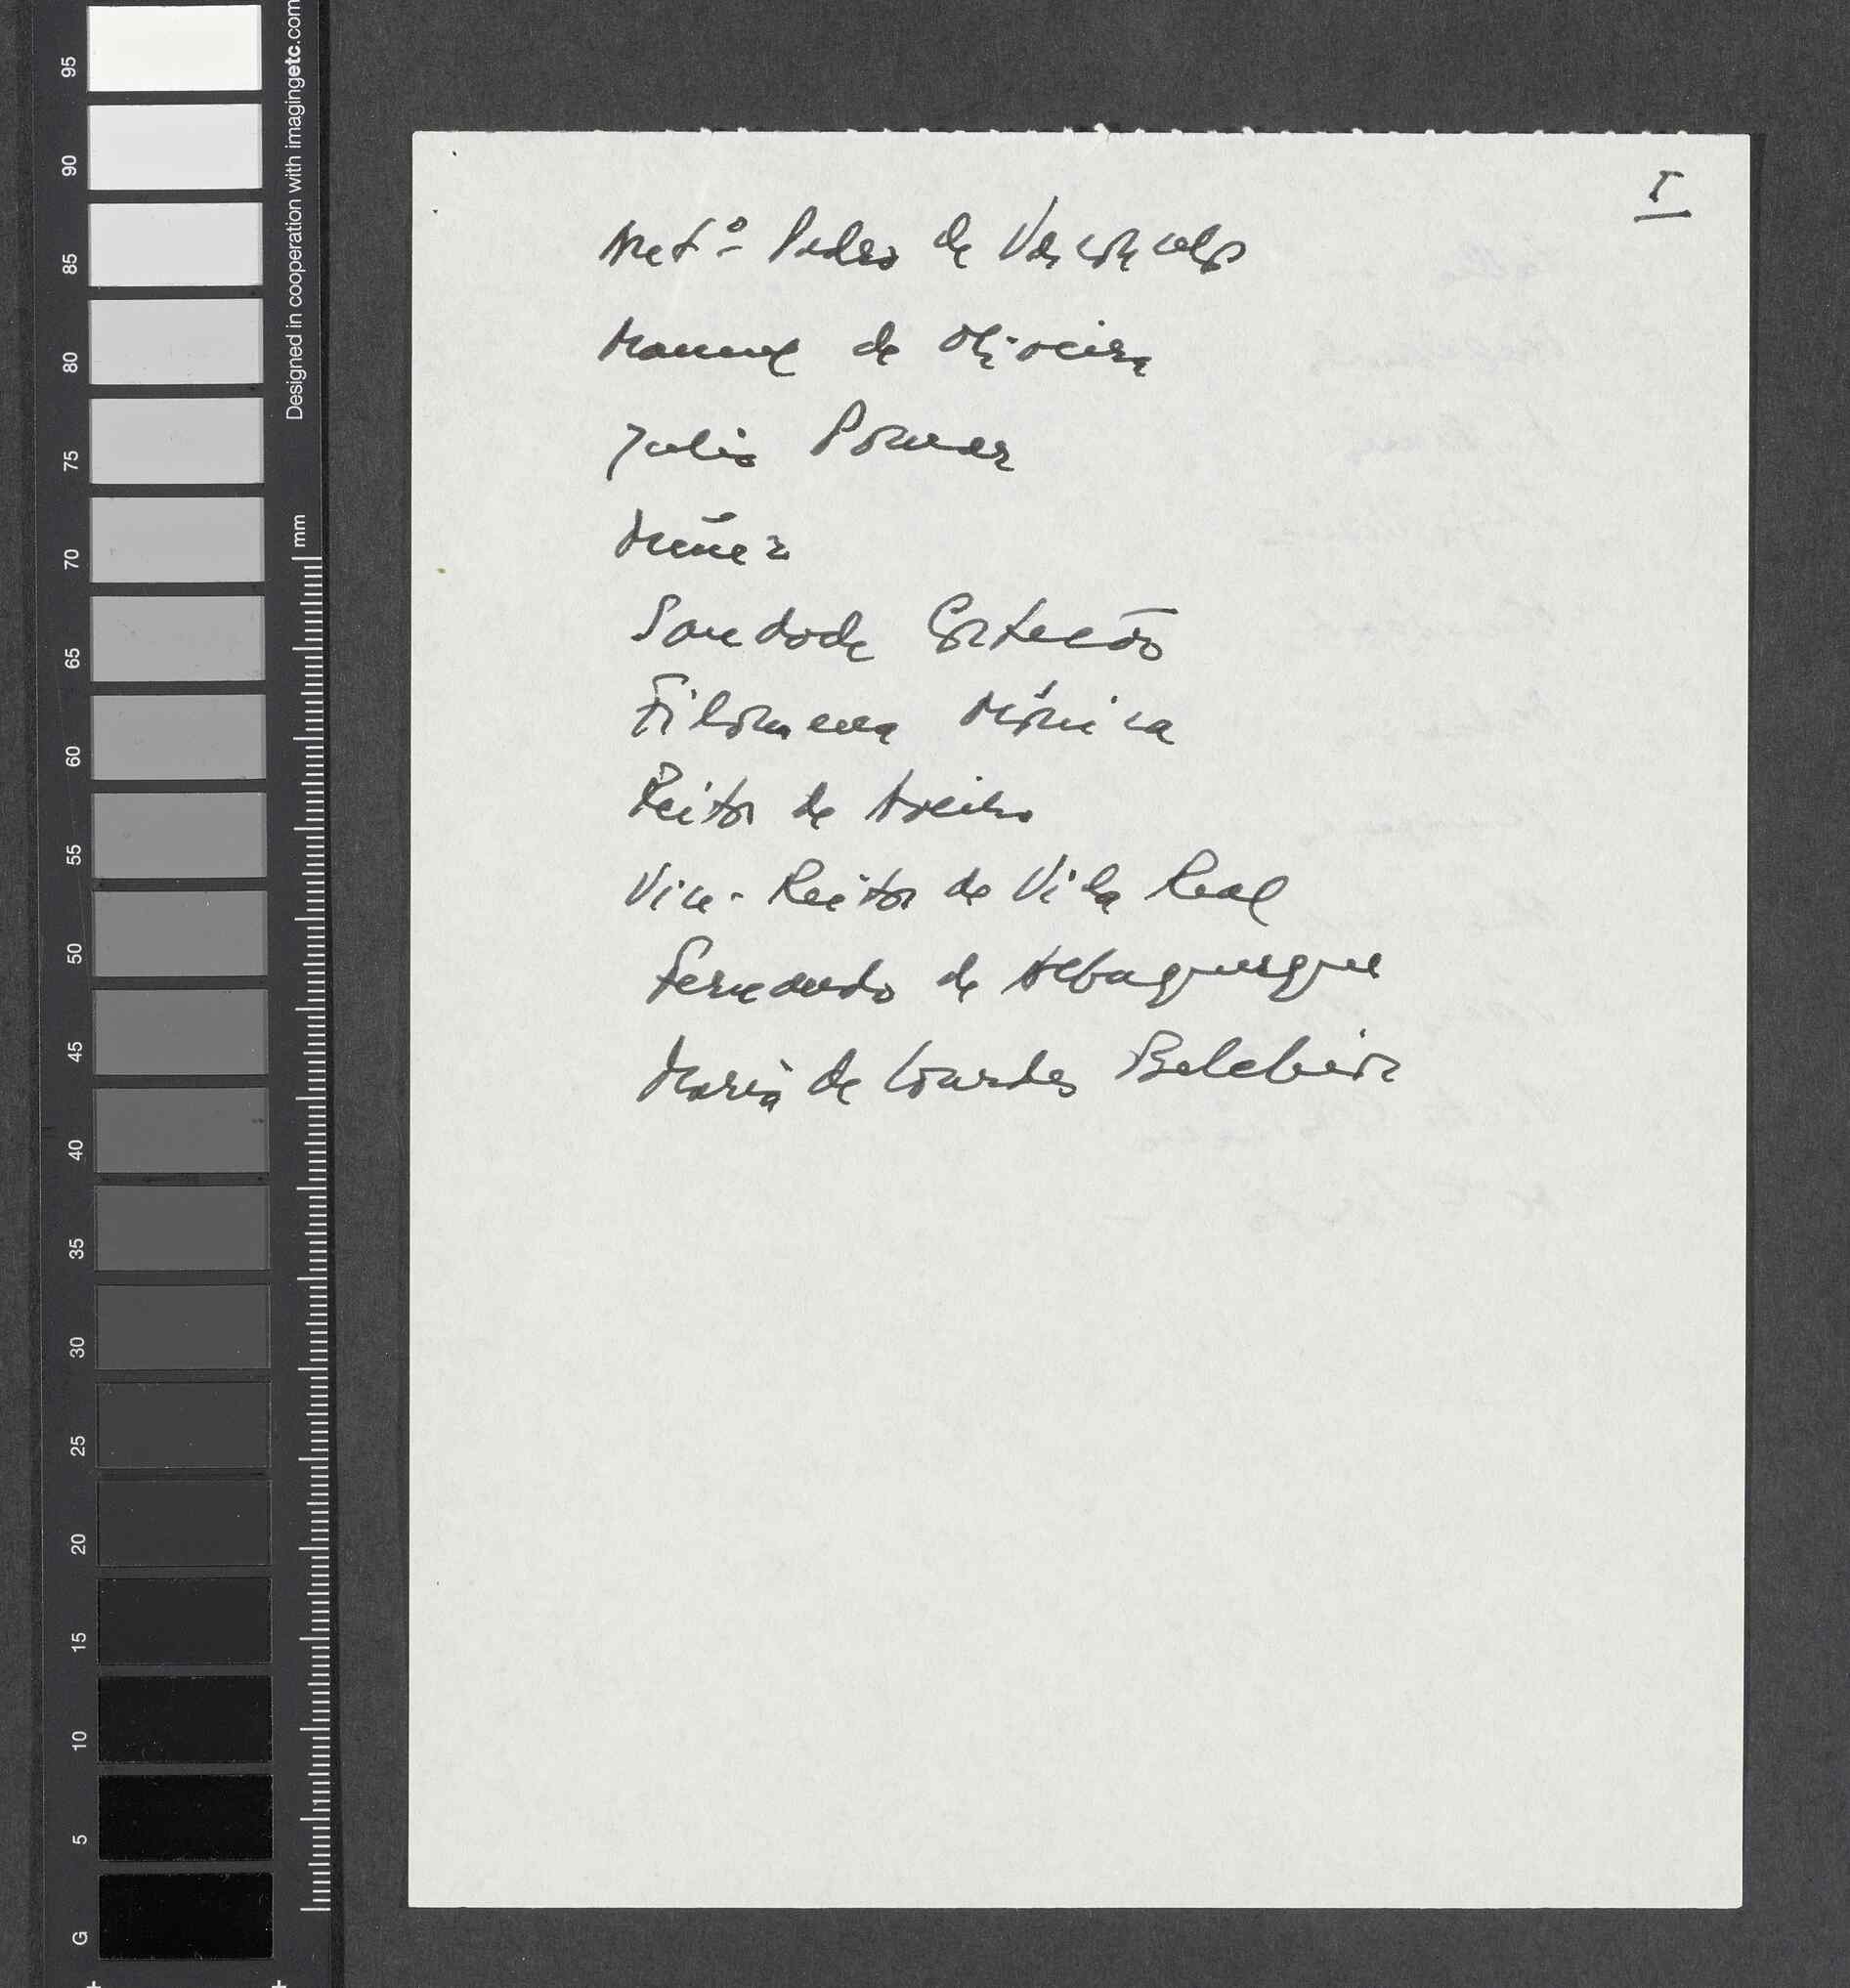 I
Antº Pedro de Vasconcelos
Manuel de Oliveira
Julio Pomar
Muñez
Saudade Cortesão
Filomena Mónica
Reitor de Aveiro
Vice-Reitor de Vila Real
Fernando de Albuquerque
Maria de Lourdes Belchior
Designed in cooperation with imagingetc.com
mm
95
90
85
80
75
70
65
60
55
50
45
40
35
30
25
20
15
10
5
G